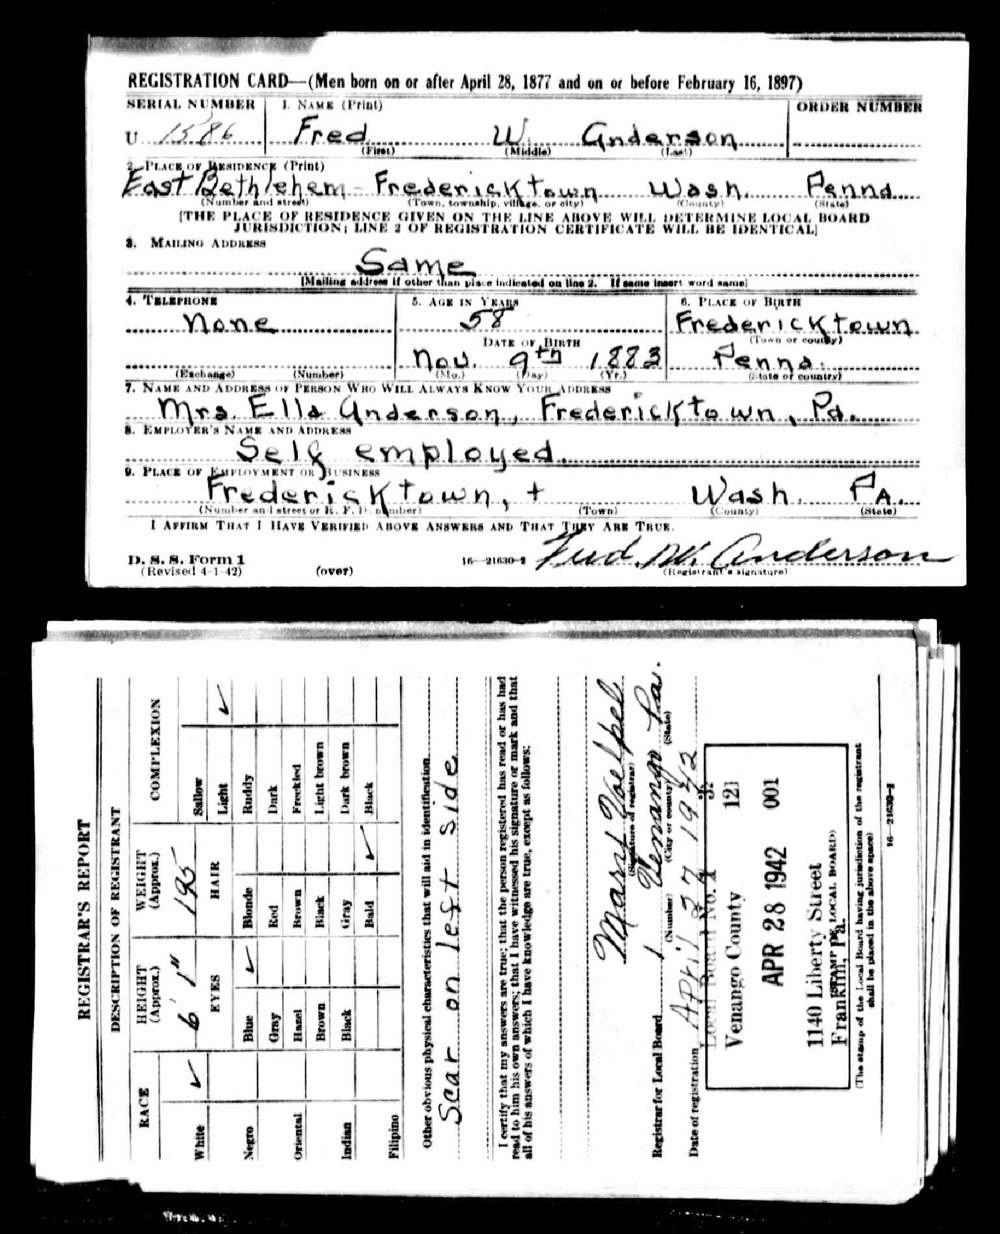 REGISTRATION CARD—(Men born on or after April 28, 1877 and on or before February 16, 1897)
SERIAL NUMBER 1. NAME (Print) ORDER NUMBER
U 1586 Fred W. Anderson
(First) (Middle) (Last)
2. PLACE OF RESIDENCE (Print)
East Bethlehem Fredericktown Wash. Penna
(Number and street) (Town, township, village, or city) (County) (State)
[THE PLACE OF RESIDENCE GIVEN ON THE LINE ABOVE WILL DETERMINE LOCAL BOARD
JURISDICTION; LINE 2 OF REGISTRATION CERTIFICATE WILL BE IDENTICAL]
3. MAILING ADDRESS
Same
[Mailing address if other than place indicated on line 2. If same insert word same]
4. TELEPHONE 5. AGE IN YEARS 6. PLACE OF BIRTH
None 58 Fredericktown
DATE OF BIRTH (Town or county)
Nov. 9th 1883 Penna.
(Exchange) (Number) (Mo.) (Day) (Yr.) (State or country)
7. NAME AND ADDRESS OF PERSON WHO WILL ALWAYS KNOW YOUR ADDRESS
Mrs. Ella Anderson, Fredericktown, Pa.
8. EMPLOYER'S NAME AND ADDRESS
Self employed.
9. PLACE OF EMPLOYMENT OR BUSINESS
Fredericktown, + Wash. PA.
(Number and street or R. F. D. number) (Town) (County) (State)
I AFFIRM THAT I HAVE VERIFIED ABOVE ANSWERS AND THAT THEY ARE TRUE.
D. S. S. Form 1
(Revised 4-1-42) (over) 16—21630-2 Fred. W. Anderson
(Registrant's signature)
REGISTRAR'S REPORT
DESCRIPTION OF REGISTRANT
RACE HEIGHT (Approx.) WEIGHT (Approx.) COMPLEXION
White ✓ 6' 1" 195 Sallow
EYES HAIR Light ✓
Negro Blue ✓ Blonde Ruddy
Gray Red Dark
Oriental Hazel Brown Freckled
Brown Black Light brown
Indian Black Gray Dark brown
Bald ✓ Black
Filipino
Other obvious physical characteristics that will aid in identification
Scar on left side
I certify that my answers are true; that the person registered has read or has had
read to him his own answers; that I have witnessed his signature or mark and that
all of his answers of which I have knowledge are true, except as follows:
Mary
(Signature of registrar)
Registrar for Local Board 1 Venango Pa.
(Number) (City or county) (State)
Date of registration April 27 1942
Local Board No. 1 32
Venango County 121
APR 28 1942 001
1140 Liberty Street
Franklin, Pa.
(STAMP OF LOCAL BOARD)
(The stamp of the Local Board having jurisdiction of the registrant
shall be placed in the above space)
16—21630-2